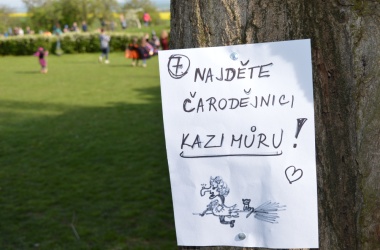 7 NAJDĚTE
ČARODĚJNICI
KAZIMŮRU!